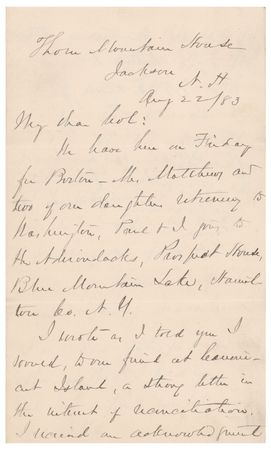 Thorn Mountain House
Jackson
N. H
Aug 22/83
My dear Col:
We leave here on Friday
for Boston — Mrs. Matthews and
two of our daughters returning to
Washington, Paul & I going to
the Adirondacks, Prospect House,
Blue Mountain Lake, Hamil-
ton Co. N. Y.
I wrote as I told you I
would, to our friend at
Island, a strong letter in
the interest of reconciliation.
I received an acknowledgment